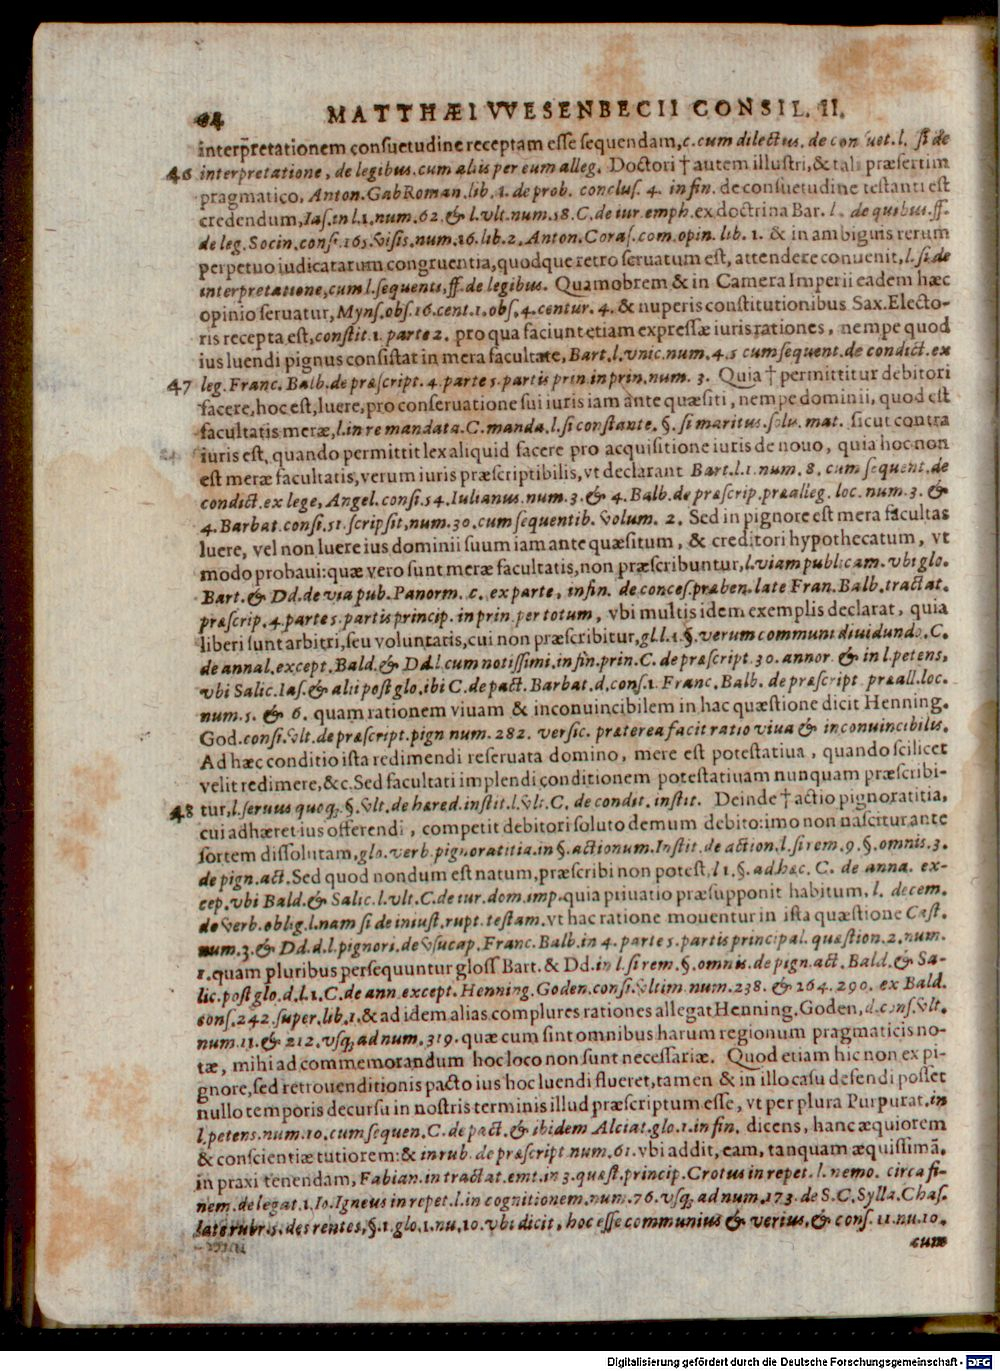 MATTHÆI VVESENBECII CONSIL. II.
interp̄retationem consuetudine receptam esse sequendam, c. cum dilectus. de con uet. l. si de
46 interpretatione, de legibus. cum aliis per eum alleg. Doctori † autem illustri, & tali præsertim
pragmatico, Anton. Gab Roman. lib. 1. de prob. concluſ. 4. in fin. de consuetudine testanti est
credendum, Iaſ. in l. 1. num. 62. & l. vlt. num. 18. C. de iur. emph. ex doctrina Bar. l. de quibus. ff.
de leg. Socin. conſ. 165. Visis. num. 16. lib. 2. Anton. Coraſ. com. opin. lib. 1. & in ambiguis rerum
perpetuo iudicatarum congruentia, quodque retro seruatum est, attendere conuenit, l. si de
interpretatione, cum l. sequenti, ff. de legibus. Quamobrem & in Camera Imperii eadem hæc
opinio seruatur, Mynſ. obſ. 16. cent. 1. obſ. 4. centur. 4. & nuperis constitutionibus Sax. Electo-
ris recepta est, constit. 1. parte 2. pro qua faciunt etiam expressæ iuris rationes, nempe quod
ius luendi pignus consistat in mera facultate, Bart. l. vnic. num. 4. 5 cum sequent. de condict. ex
47 leg. Franc. Balb. de præscript. 4. parte 5. partis prin. in prin. num. 3. Quia † permittitur debitori
facere, hoc est, luere, pro conseruatione sui iuris iam ante quæsiti, nempe dominii, quod est
facultatis meræ, l. in re mandata. C. manda. l. si constante. §. si maritus. solu. mat. sicut contra
iuris est, quando permittit lex aliquid facere pro acquisitione iuris de nouo, quia hoc non
est meræ facultatis, verum iuris præscriptibilis, vt declarant Bart. l. 1. num. 8. cum sequent. de
condict. ex lege, Angel. consi. 54. Iulianus. num. 3. & 4. Balb. de præscrip. præalleg. loc. num. 3. &
4. Barbat. consi. 51. scripsit, num. 30. cum sequentib. Volum. 2. Sed in pignore est mera facultas
luere, vel non luere ius dominii suum iam ante quæsitum, & creditori hypothecatum, vt
modo probaui: quæ vero sunt meræ facultatis, non præscribuntur, l. viam publicam. vbi glo.
Bart. & Dd. de via pub. Panorm. c. ex parte, in fin. de conceſ. præben. late Fran. Balb. tractat.
præscrip. 4. parte 5. partis princip. in prin. per totum, vbi multis idem exemplis declarat, quia
liberi sunt arbitri, seu voluntatis, cui non præscribitur, gl. l. 1. §. verum communi diuidundo. C.
de annal. except. Bald. & Dd. l. cum notissimi. in fin. prin. C. de præscript. 30. annor. & in l. petens,
vbi Salic. Iaſ. & alii post glo. ibi C. de pact. Barbat. d. conſ. 1. Franc. Balb. de præscript. præall. loc.
num. 5. & 6. quam rationem viuam & inconuincibilem in hac quæstione dicit Henning.
God. consi. Vlt. de præscript. pign num. 282. versic. præterea facit ratio viua & inconuincibilis.
Ad hæc conditio ista redimendi reseruata domino, mere est potestatiua, quando scilicet
velit redimere, &c. Sed facultati implendi conditionem potestatiuam nunquam præscribi-
48 tur, l. seruus quoq; §. Vlt. de hæred. instit. l. Vlt. C. de condit. instit. Deinde † actio pignoratitia,
cui adhæret ius offerendi, competit debitori soluto demum debito: imo non nascitur ante
sortem dissolutam, glo. verb. pignoratitia. in §. actionum. Instit. de action. l. si rem. 9. §. omnis. 3.
de pign. act. Sed quod nondum est natum, præscribi non potest, l 1. §. ad hæc. C. de anna. ex-
cep. vbi Bald. & Salic. l. vlt. C. de iur. dom. imp. quia priuatio præsupponit habitum, l. decem.
de Verb. oblig. l. nam si de iniust. rupt. testam. vt hac ratione mouentur in ista quæstione Cast.
num. 3. & Dd. d. l. pignori. de Vsucap. Franc. Balb. in 4. parte 5. partis principal. quæstion. 2. num.
1. quam pluribus persequuntur gloss Bart. & Dd. in l. si rem. §. omnis. de pign. act. Bald. & Sa-
lic. post glo. d. l. 1. C. de ann. except. Henning. Goden. consi. Vltim. num. 238. & 264. 290. ex Bald.
conſ. 242. super. lib. 1. & ad idem alias complures rationes allegat Henning. Goden, d. conſ. Vlt.
num. 11. & 212. vsq; ad num. 319. quæ cum sint omnibus harum regionum pragmaticis no-
tæ, mihi ad commemorandum hoc loco non sunt necessariæ. Quod etiam hic non ex pi-
gnore, sed retrouenditionis pacto ius hoc luendi flueret, tamen & in illo casu defendi posset
nullo temporis decursu in nostris terminis illud præscriptum esse, vt per plura Purpurat. in
l. petens. num. 10. cum sequen. C. de pact. & ibidem Alciat. glo. 1. in fin. dicens, hanc æquiorem
& conscientiæ tutiorem: & in rub. de præscript. num. 61. vbi addit, eam, tanquam æquissimā,
in praxi tenendam, Fabian. in tractat. emt. in 3. quæst. princip. Crotus in repet. l. nemo. circa fi-
nem. de legat. 1. Io. Igneus in repet. l. in cognitionem. num. 76. vsq; ad num. 173. de S. C. Sylla. Chaſ.
late rubr. 5. des rentes, §. 1. glo. 1. nu. 10. vbi dicit, hoc esse communius & verius, & conſ. 11. nu. 10.
cum
Digitalisierung gefördert durch die Deutsche Forschungsgemeinschaft - DFG